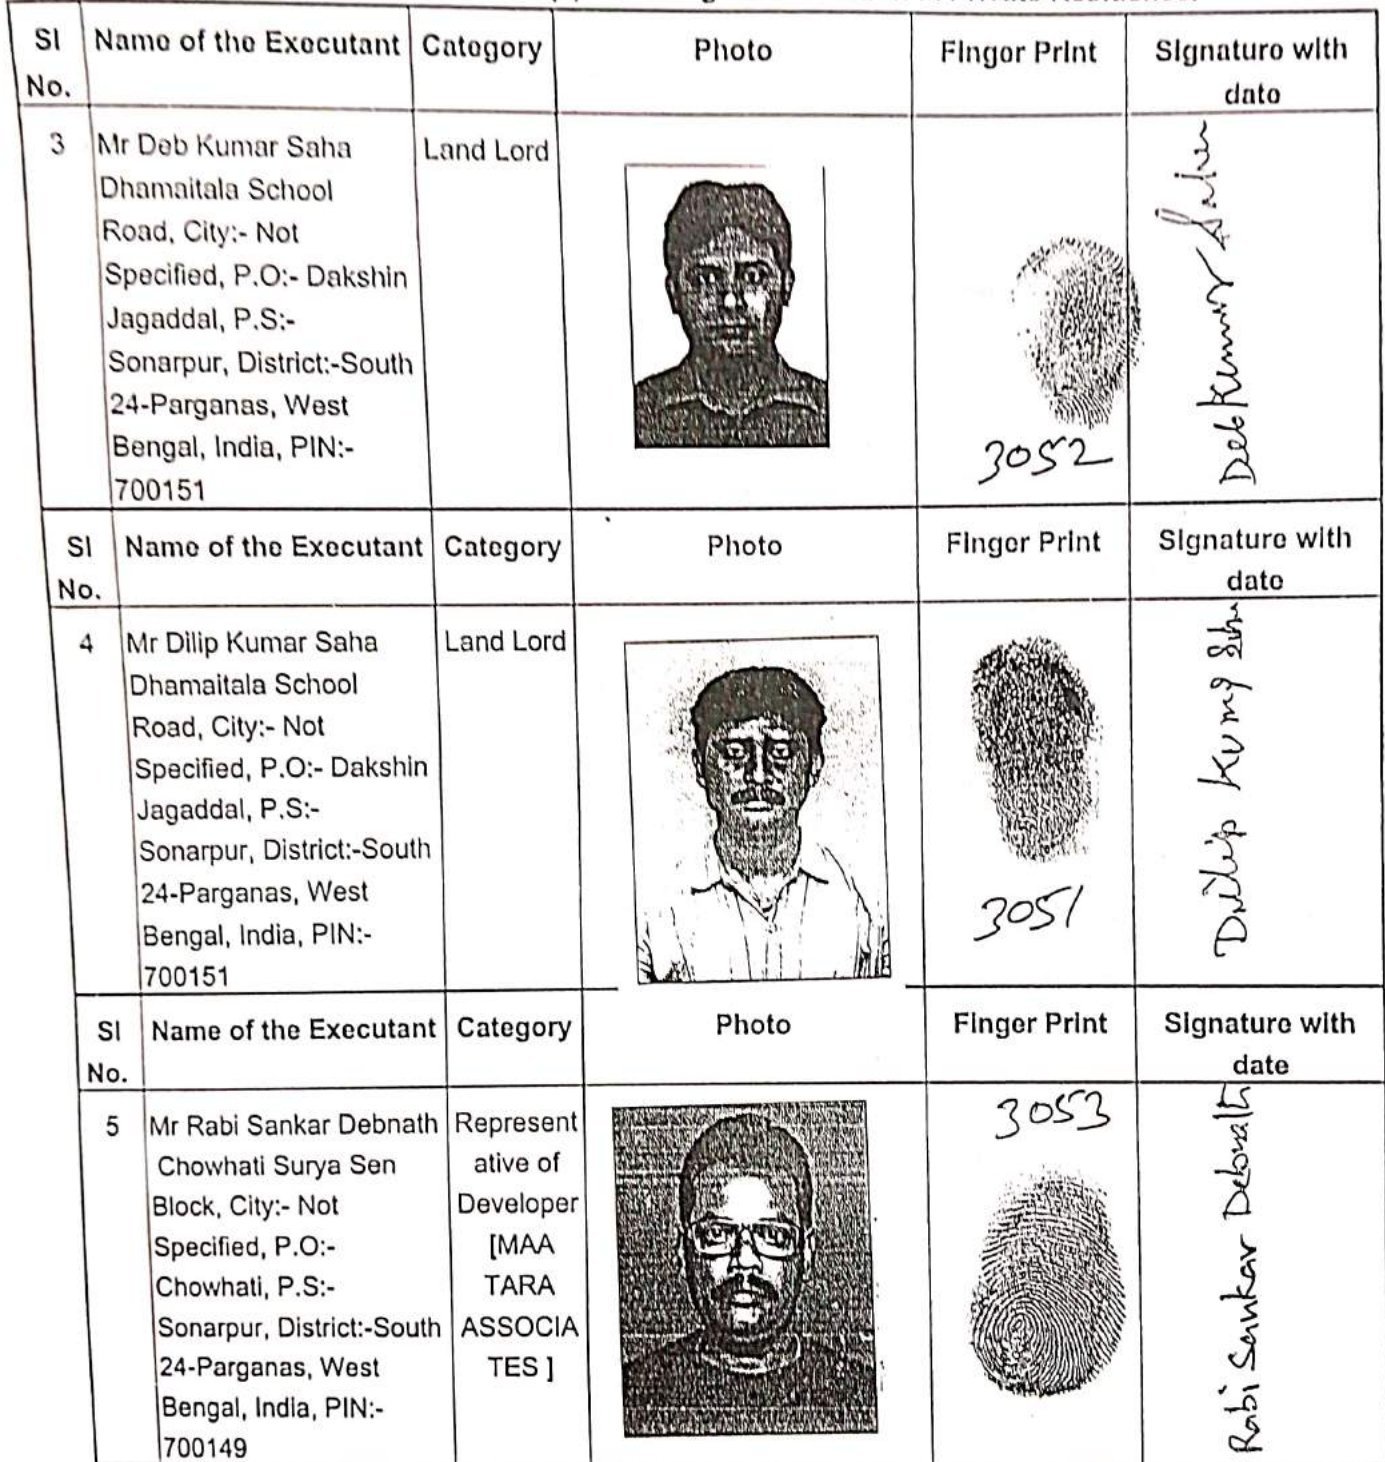 Sl No. Name of the Executant Category Photo Finger Print Signature with date
3 Mr Deb Kumar Saha Land Lord
Dhamaitala School
Road, City:- Not
Specified, P.O:- Dakshin
Jagaddal, P.S:-
Sonarpur, District:-South
24-Parganas, West
Bengal, India, PIN:-
700151
3052
Deb Kumar Saha
Sl No. Name of the Executant Category Photo Finger Print Signature with date
4 Mr Dilip Kumar Saha Land Lord
Dhamaitala School
Road, City:- Not
Specified, P.O:- Dakshin
Jagaddal, P.S:-
Sonarpur, District:-South
24-Parganas, West
Bengal, India, PIN:-
700151
3051
Dilip Kumar Saha
Sl No. Name of the Executant Category Photo Finger Print Signature with date
5 Mr Rabi Sankar Debnath
Chowhati Surya Sen
Block, City:- Not
Specified, P.O:-
Chowhati, P.S:-
Sonarpur, District:-South
24-Parganas, West
Bengal, India, PIN:-
700149
Represent
ative of
Developer
[MAA
TARA
ASSOCIA
TES ]
3053
Rabi Sankar Debnath